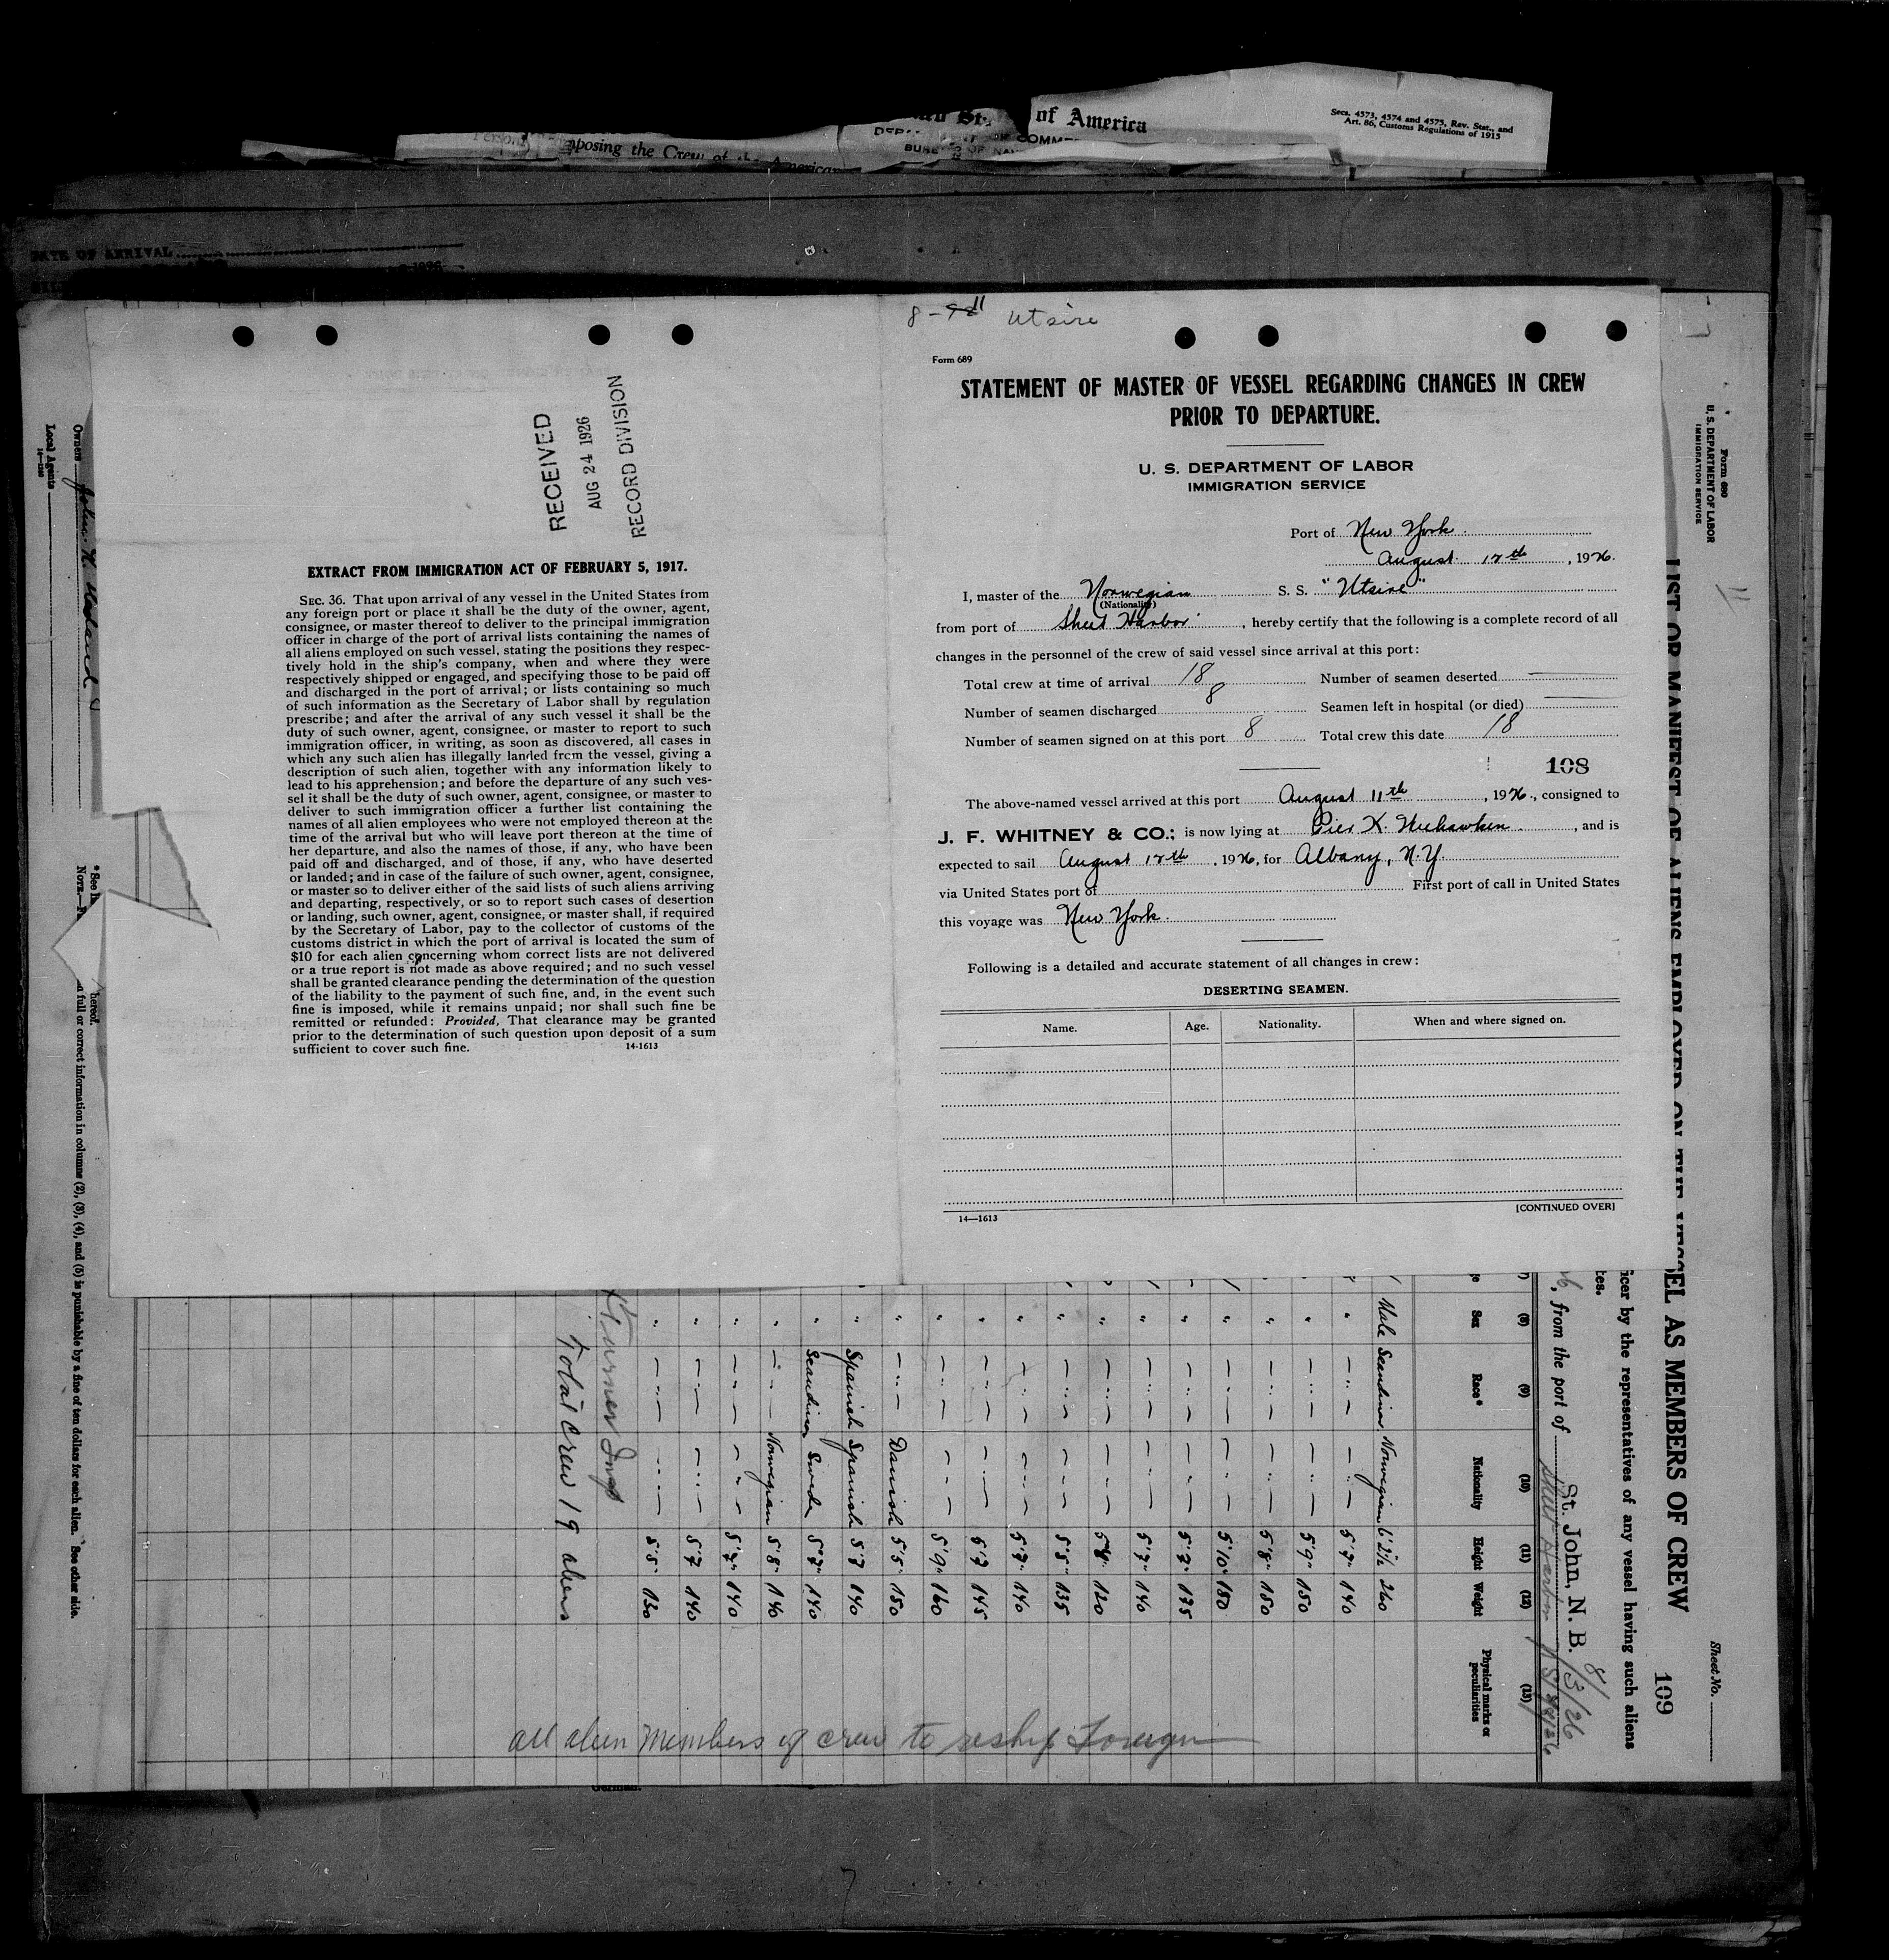 of America
Secs. 4573, 4574 and 4575, Rev. Stat., and
Art. 86, Customs Regulations of 1915
posing the Crew of the American
DATE OF ARRIVAL
8-11 Utsire
Form 689
STATEMENT OF MASTER OF VESSEL REGARDING CHANGES IN CREW
PRIOR TO DEPARTURE.
U. S. DEPARTMENT OF LABOR
IMMIGRATION SERVICE
Port of New York
August 12th, 1926.
I, master of the Norwegian S. S. "Utsire"
(Nationality)
from port of Sheet Harbor, hereby certify that the following is a complete record of all
changes in the personnel of the crew of said vessel since arrival at this port:
Total crew at time of arrival 18 Number of seamen deserted
Number of seamen discharged 8 Seamen left in hospital (or died)
Number of seamen signed on at this port 8 Total crew this date 18
108
The above-named vessel arrived at this port August 11th, 1926., consigned to
J. F. WHITNEY & CO.; is now lying at Pier K. Weehawken, and is
expected to sail August 12th, 1926, for Albany, N.Y.
via United States port of First port of call in United States
this voyage was New York.
Following is a detailed and accurate statement of all changes in crew:
DESERTING SEAMEN.
Name. Age. Nationality. When and where signed on.
14—1613 [CONTINUED OVER]
RECEIVED
AUG 24 1926
RECORD DIVISION
EXTRACT FROM IMMIGRATION ACT OF FEBRUARY 5, 1917.
SEC. 36. That upon arrival of any vessel in the United States from
any foreign port or place it shall be the duty of the owner, agent,
consignee, or master thereof to deliver to the principal immigration
officer in charge of the port of arrival lists containing the names of
all aliens employed on such vessel, stating the positions they respec-
tively hold in the ship's company, when and where they were
respectively shipped or engaged, and specifying those to be paid off
and discharged in the port of arrival; or lists containing so much
of such information as the Secretary of Labor shall by regulation
prescribe; and after the arrival of any such vessel it shall be the
duty of such owner, agent, consignee, or master to report to such
immigration officer, in writing, as soon as discovered, all cases in
which any such alien has illegally landed from the vessel, giving a
description of such alien, together with any information likely to
lead to his apprehension; and before the departure of any such ves-
sel it shall be the duty of such owner, agent, consignee, or master to
deliver to such immigration officer a further list containing the
names of all alien employees who were not employed thereon at the
time of the arrival but who will leave port thereon at the time of
her departure, and also the names of those, if any, who have been
paid off and discharged, and of those, if any, who have deserted
or landed; and in case of the failure of such owner, agent, consignee,
or master so to deliver either of the said lists of such aliens arriving
and departing, respectively, or so to report such cases of desertion
or landing, such owner, agent, consignee, or master shall, if required
by the Secretary of Labor, pay to the collector of customs of the
customs district in which the port of arrival is located the sum of
$10 for each alien concerning whom correct lists are not delivered
or a true report is not made as above required; and no such vessel
shall be granted clearance pending the determination of the question
of the liability to the payment of such fine, and, in the event such
fine is imposed, while it remains unpaid; nor shall such fine be
remitted or refunded: Provided, That clearance may be granted
prior to the determination of such question upon deposit of a sum
sufficient to cover such fine. 14-1613
Form 680
U. S. DEPARTMENT OF LABOR
IMMIGRATION SERVICE
Sheet No.
LIST OR MANIFEST OF ALIENS EMPLOYED ON THE VESSEL AS MEMBERS OF CREW
109
icer by the representatives of any vessel having such aliens
tes.
, from the port of Sheet Harbor
St. John, N. B. 8/3/26
(8) (9) (10) (11) (12) (13)
Sex Race* Nationality Height Weight Physical marks or peculiarities
Male Scandinav. Norwegian 6'2½ 260
" — " — — " — 5'7" 140
" — " — — " — 5'9" 150
" — " — — " — 5'8" 150
" — " — — " — 5'10" 180
" — " — — " — 5'7" 135
" — " — — " — 5'7" 140
" — " — — " — 5'8" 120
" — " — — " — 5'5" 135
" — " — — " — 5'7" 140
" — " — — " — 5'7 145
" — " — — " — 5'9" 160
" — " — Danish 5'5" 150
" Spanish Spanish 5'7 140
" Scandinav Swede 5'7" 140
" — " — Norwegian 5'8" 140
" — " — — " — 5'7" 140
" — " — — " — 5'7 140
" — " — — " — 5'5" 130
Turner Insp
Total crew 19 aliens
all alien members of crew to reship Foreign
*See
hereof.
full or correct information in columns (2), (3), (4), and (5) is punishable by a fine of ten dollars for each alien. See other side.
Owners John K.
Local Agents
German.